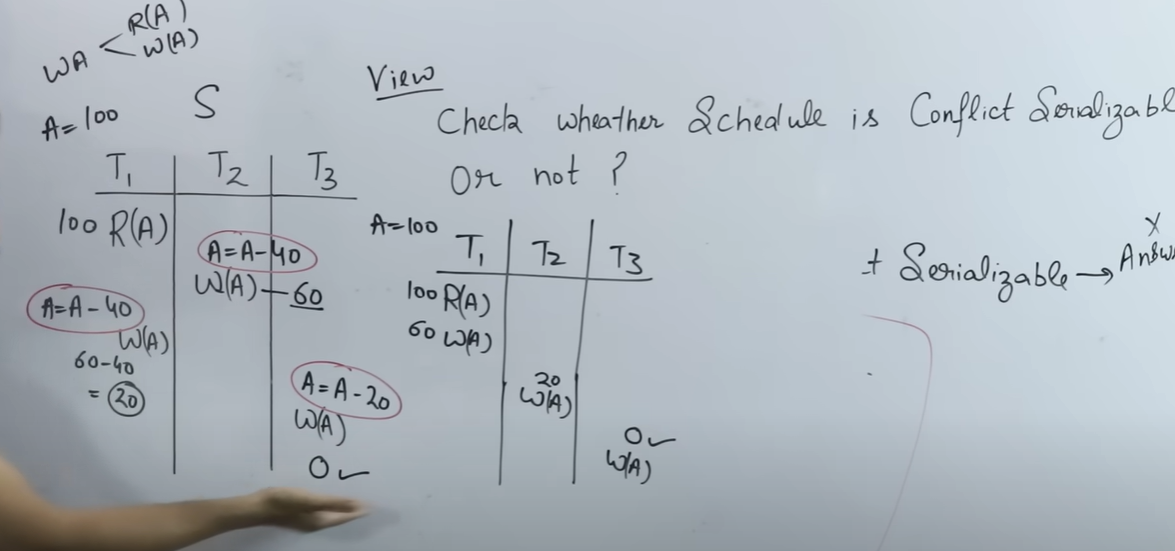 R(A)
WA < W(A)
A=100 S
T1 T2 T3
100 R(A)
A=A-40
W(A) - 60
A=A-40
W(A)
60-40
= 20
A=A-20
W(A)
0 ✓
View
Check wheather Schedule is Conflict Serializable
Or not ?
A=100
T1 T2 T3
100 R(A)
60 W(A)
20
W(A)
0 ✓
W(A)
X
Serializable →